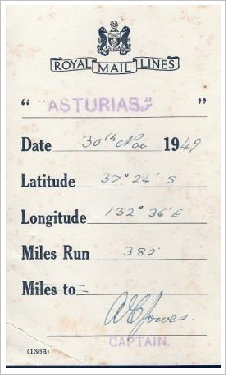 ROYAL MAIL LINES
" ASTURIAS." "
Date 30th Nov 1949
Latitude 37° 24' S
Longitude 132° 36' E
Miles Run 385
Miles to -
CAPTAIN.